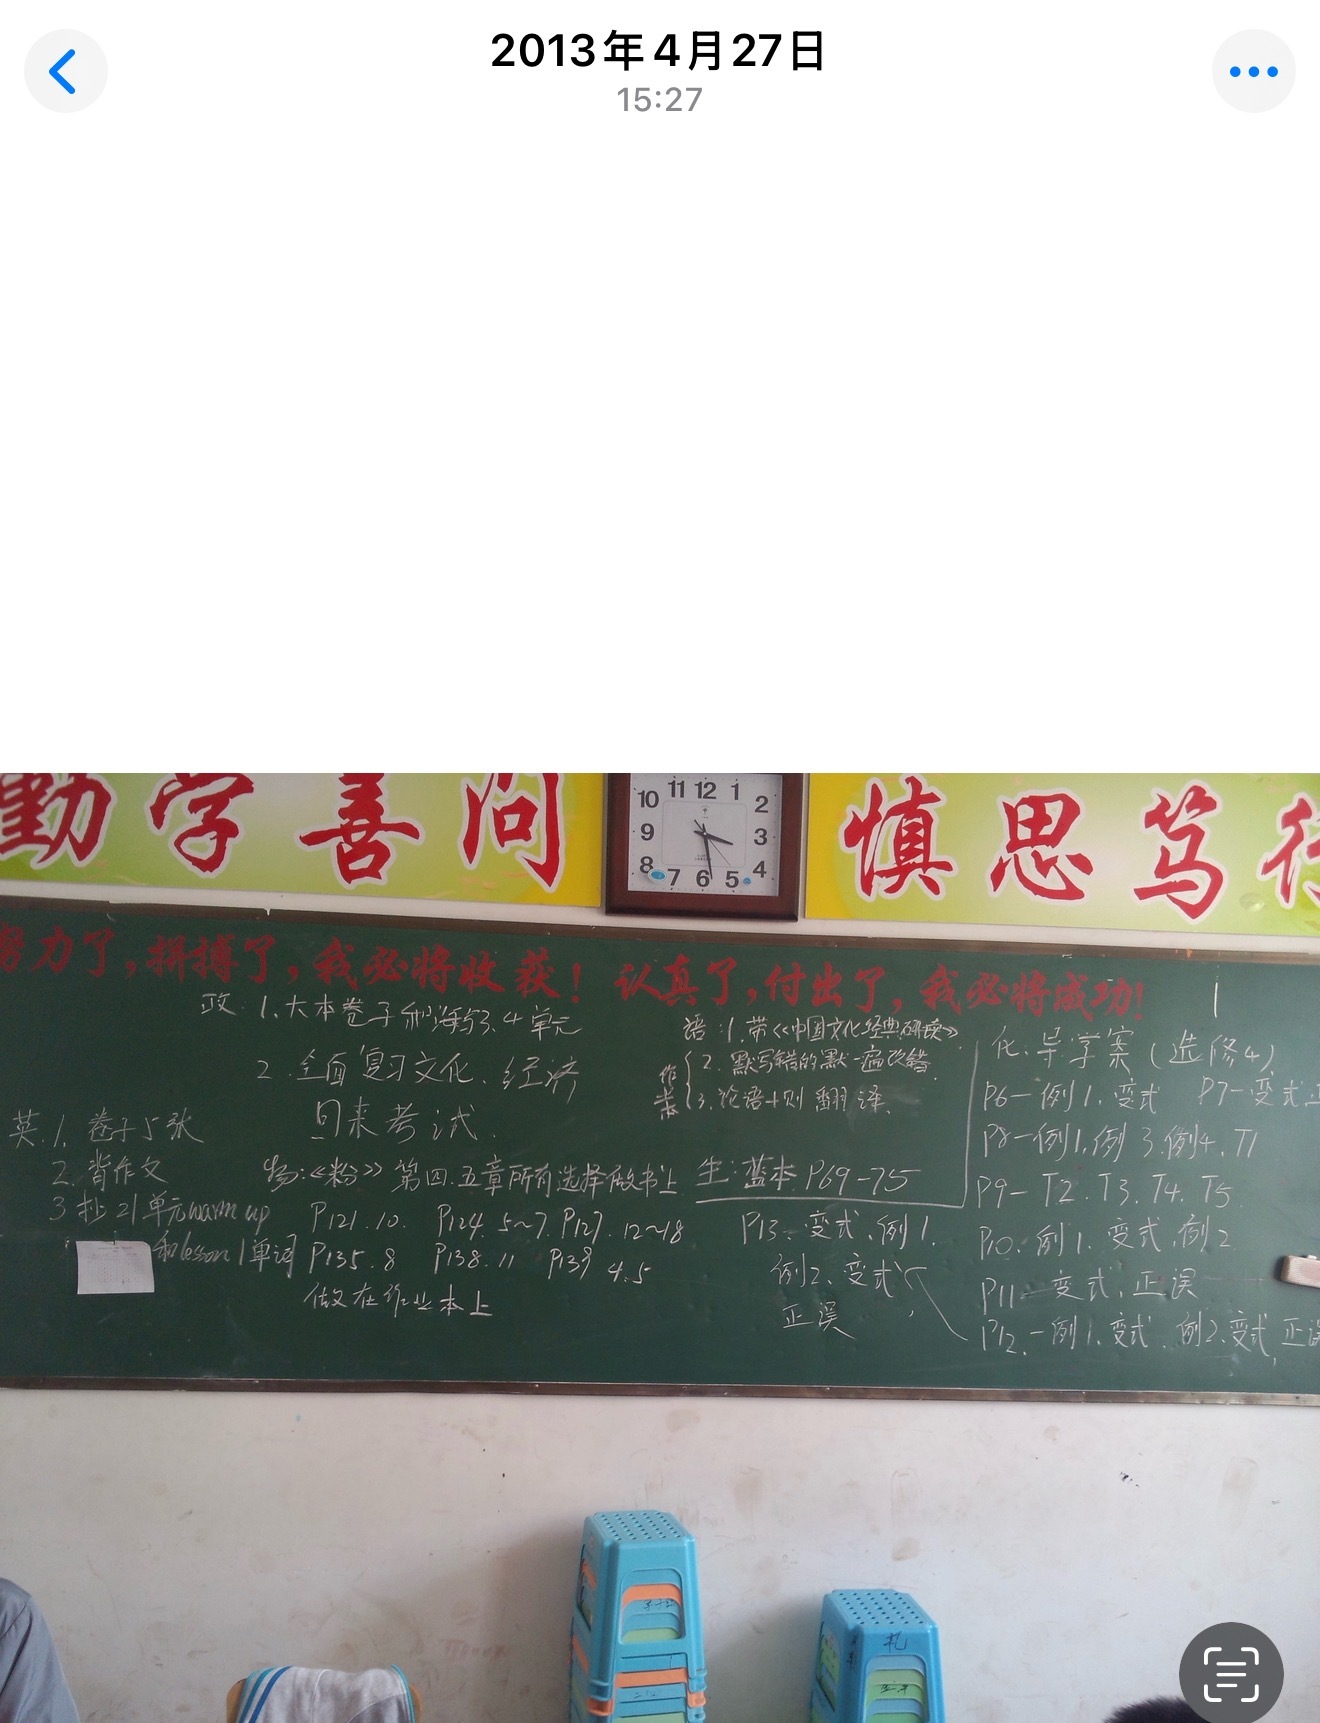 2013年4月27日
15:27
勤学善问
10 11 12 1 2 3 4 5 6 7 8 9
慎思笃行
努力了，拼搏了，我必将收获！认真了，付出了，我必将成功！
政. 1.大本卷子和 3.4单元
2.全面复习文化、经济
回来考试.
英 1. 卷子5张
2. 背作文
3 抄21单元warm up
和lesson 1单词
物:《粉》第四.五章所有选择做书上
P121.10. P124. 5~7. P127. 12~18
P135.8 P138.11 P139 4.5
做在作业本上
语:1.带《中国文化经典研读》
作业本
2.默写错的默一遍改错
3.论语十则翻译.
生:蓝本.P69-75
化.导学案(选修4)
P6-例1.变式 P7-变式正
P8-例1.例3.例4.T1
P9-T2.T3.T4.T5.
P10.例1.变式.例2
P11-变式.正误
P12.-例1.变式.例2.变式.正误
P13-变式.例1.
例2.变式
正误